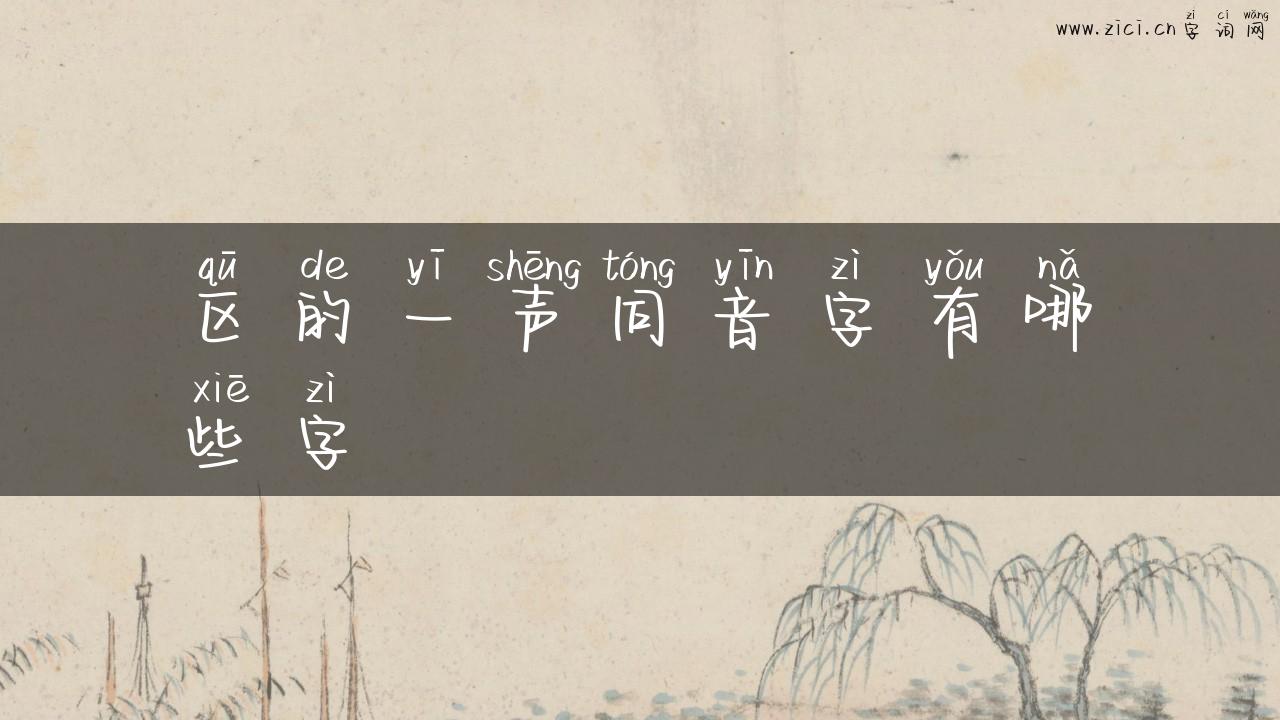 zì cí wǎng
www.zici.cn 字 词 网
qū de yī shēng tóng yīn zì yǒu nǎ
区 的 一 声 同 音 字 有 哪
xiē zì
些 字